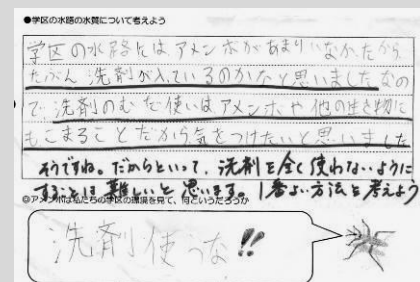 ●学区の水路の水質について考えよう
学区の水路にはアメンボがあまりいなかったから
たぶん洗剤が入っているのかなと思いましたなの
で、洗剤のむだ使いはアメンボや他の生き物に
もこまることだから気をつけたいと思いました
そうですね。だからといって、洗剤を全く使わないように
することは難しいと思います。1番よい方法を考えよう
◎アメンボは私たちの学区の環境を見て、何というだろうか
洗剤使うな!!